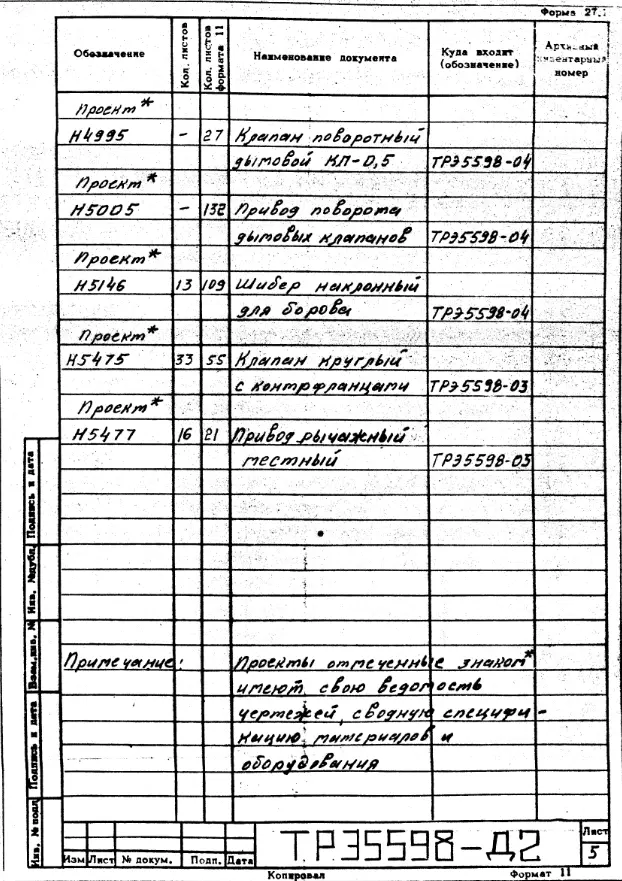 Форма 27.
Обозначение
Кол. листов
Кол. листов формата 11
Наименование документа
Куда входит (обозначение)
Архивный инвентарный номер
Проект*
Н4995 - 27 Клапан поворотный
дымовой КП-0,5 ТРЭ5598-04
Проект*
Н5005 - 132 Привод поворота
дымовых клапанов ТРЭ5598-04
Проект*
Н5146 13 109 Шибер наклонный
для борова ТРЭ5598-04
Проект*
Н5475 33 55 Клапан круглый
с контрфланцами ТРЭ5598-03
Проект*
Н5477 16 21 Привод рычажный
местный ТРЭ5598-03
Примечание: Проекты отмеченные знаком*
имеют свою ведомость
чертежей, сводную специфи-
кацию материалов и
оборудования
Подпись и дата
Инв. № дубл.
Взам. инв. №
Подпись и дата
Инв. № подл
ТРЭ5598-Д2
Лист
5
Изм Лист № докум. Подп. Дата
Копировал Формат 11